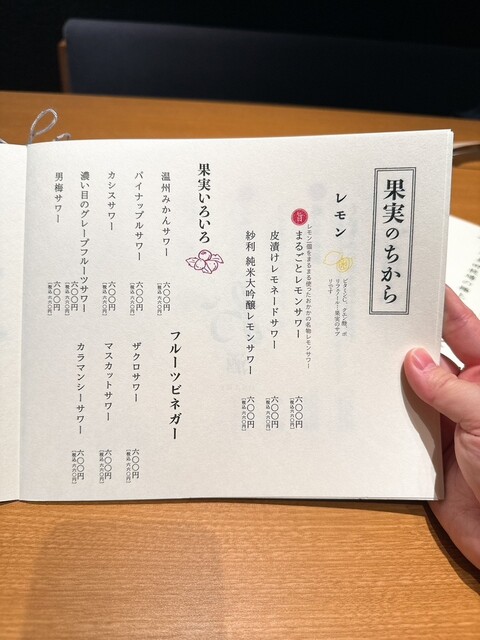 果実のちから
レモン
レモン一個をまるまる使っておかかの名物レモンサワー
まるごとレモンサワー
六〇〇円
(税込 六六〇円)
皮漬けレモネードサワー
六〇〇円
(税込 六六〇円)
紗利 純米大吟醸レモンサワー
六〇〇円
(税込 六六〇円)
果実いろいろ
温州みかんサワー
六〇〇円
(税込 六六〇円)
パイナップルサワー
六〇〇円
(税込 六六〇円)
カシスサワー
六〇〇円
(税込 六六〇円)
濃い目のグレープフルーツサワー
六〇〇円
(税込 六六〇円)
男梅サワー
六〇〇円
(税込 六六〇円)
フルーツビネガー
ザクロサワー
六〇〇円
(税込 六六〇円)
マスカットサワー
六〇〇円
(税込 六六〇円)
カラマンシーサワー
六〇〇円
(税込 六六〇円)